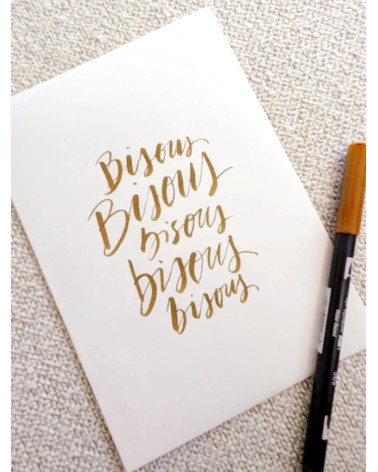 Bisous
Bisous
bisous
bisous
bisous